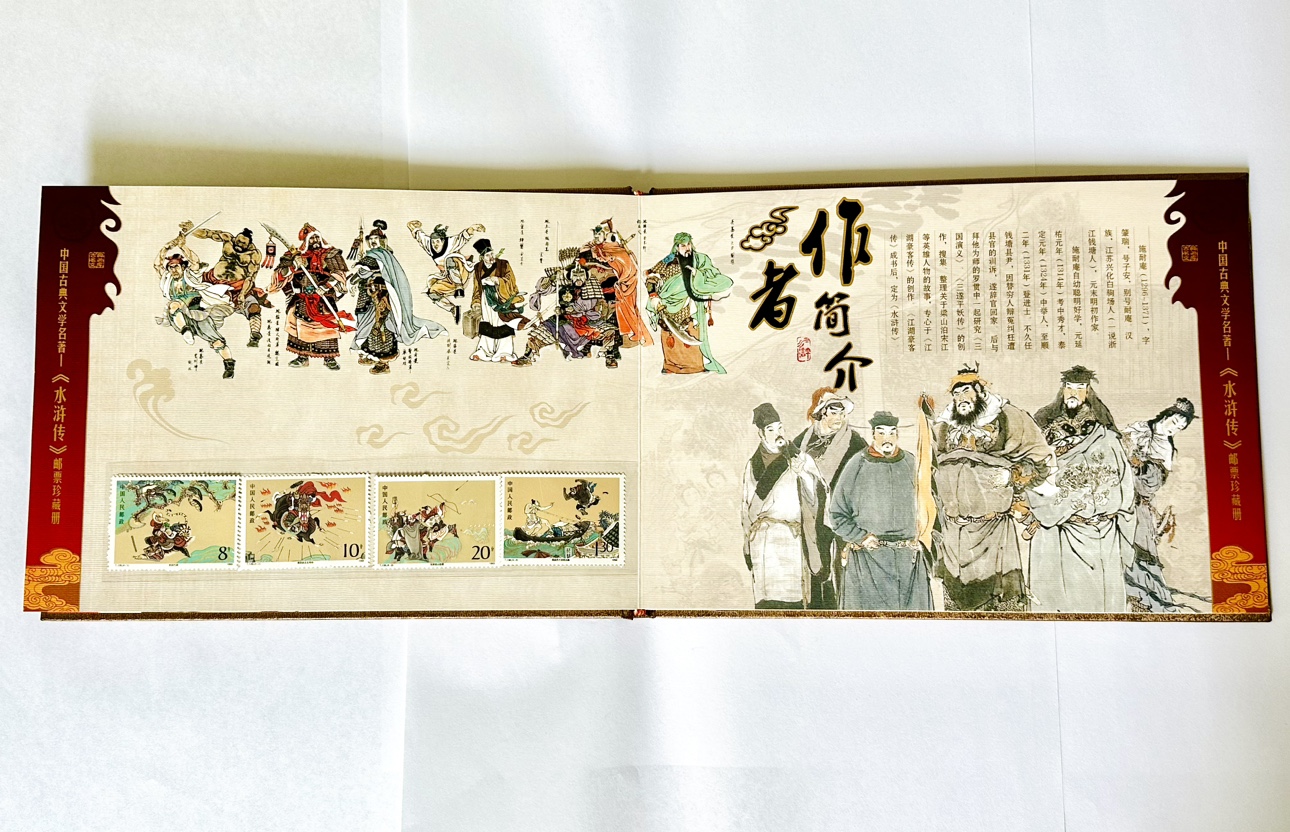 中国古典文学名著—《水浒传》邮票珍藏册
中国人民邮政
8分
中国人民邮政
10分
中国人民邮政
20分
中国人民邮政
作者简介
施耐庵(1296-1371),字
肇瑞,号子安,别号耐庵。汉
族,江苏兴化白驹场人(一说浙
江钱塘人),元末明初作家。
施耐庵自幼聪明好学,元延
佑元年(1314年)考中秀才,泰
定元年(1324年)中举人,至顺
二年(1331年)登进士。不久任
钱塘县尹,因替穷人辩冤纠枉遭
县官的训诉,遂辞官回家,后与
拜他为师的罗贯中一起研究《三
国演义》《三遂平妖传》的创
作,搜集、整理关于梁山泊宋江
等英雄人物的故事,专心于《江
湖豪客传》的创作。《江湖豪客
传》成书后,定为《水浒传》
中国古典文学名著—《水浒传》邮票珍藏册